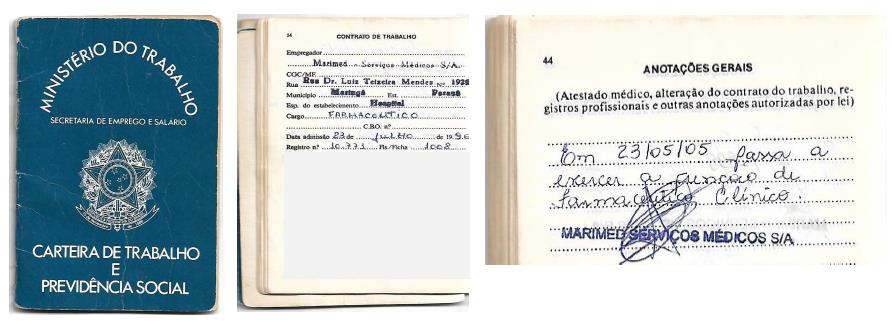 MINISTÉRIO DO TRABALHO
SECRETARIA DE EMPREGO E SALARIO
CARTEIRA DE TRABALHO
E
PREVIDÊNCIA SOCIAL
14
CONTRATO DE TRABALHO
Empregador
Marimed - Serviços Médicos S/A.
CGC/MF
Rua Rua Dr. Luiz Teixeira Mendes Nº 1929
Município Maringá Est. Paraná
Esp. do estabelecimento Hospital
Cargo FARMACEUTICO
C.B.O. nº
Data admissão 23 de julho de 1996
Registro nº 10.771 Fls/Ficha 1008
44
ANOTAÇÕES GERAIS
(Atestado médico, alteração do contrato do trabalho, re-
gistros profissionais e outras anotações autorizadas por lei)
Em 23/05/05 passa a
exercer a função de
Farmaceutico Clínico.
MARIMED SERVIÇOS MÉDICOS S/A